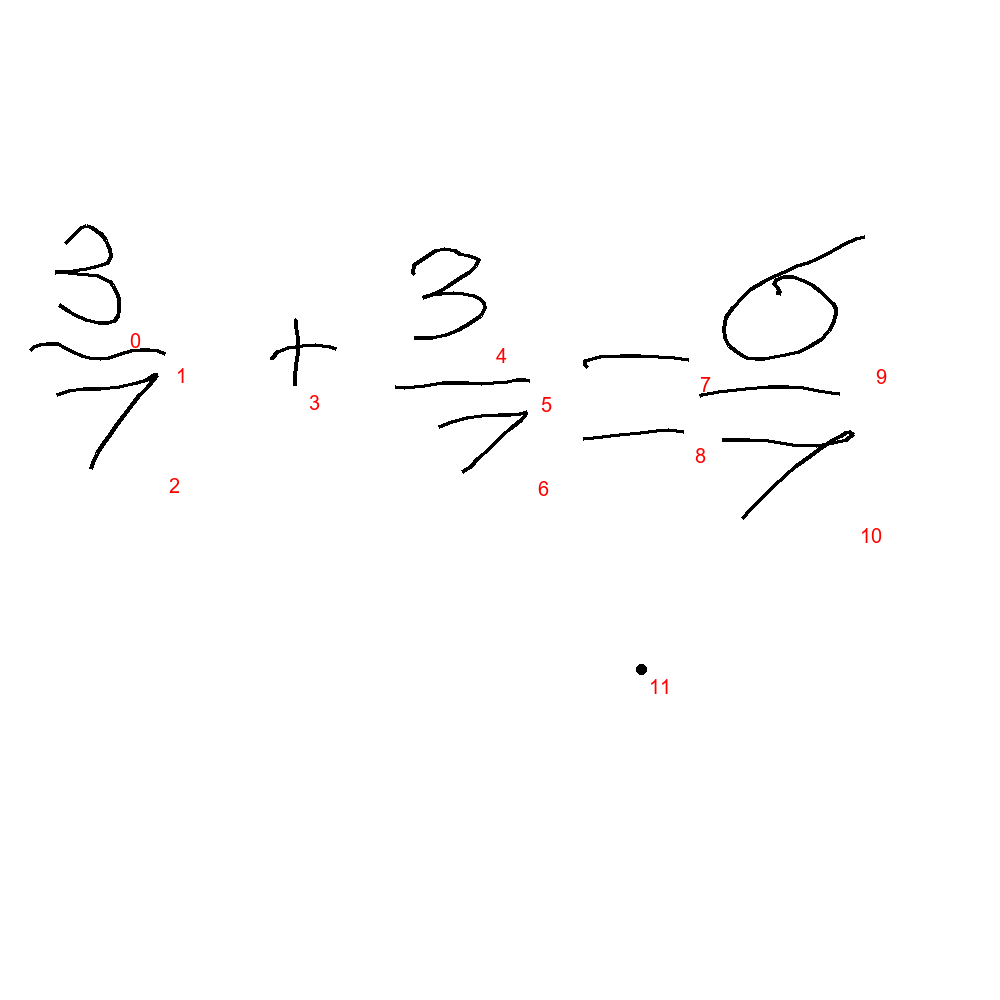 3/7 + 3/7 = 6/7
0 1 2 3 4 5 6 7 8 9 10 11